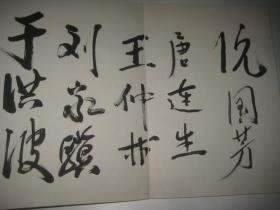 倪国芳
唐连生
王仲树
刘永骥
于洪波